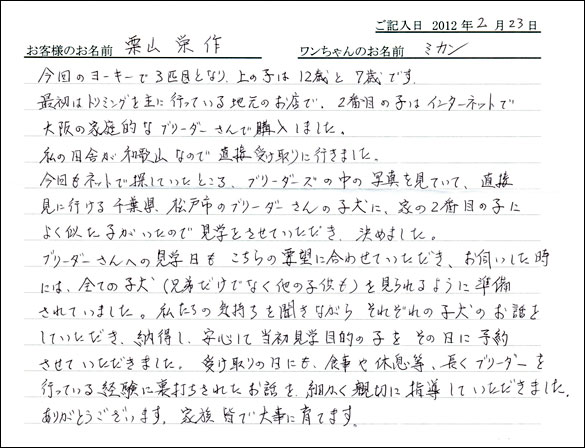 ご記入日 2012年2月23日
お客様のお名前 栗山 栄作 ワンちゃんのお名前 ミカン
今回のヨーキーで3匹目となり、上の子は12歳と7歳です。
最初はトリミングを主に行っている地元のお店で、2番目の子はインターネットで
大阪の家庭的なブリーダーさんで購入しました。
私の田舎が和歌山なので直接受け取りに行きました。
今回もネットで探していたところ、ブリーダーズの中の写真を見ていて、直接
見に行ける千葉県、松戸市のブリーダーさんの子犬に、家の2番目の子に
よく似た子がいたので見学をさせていただき、決めました。
ブリーダーさんへの見学日もこちらの要望に合わせていただき、お伺いした時
には、全ての子犬(兄弟だけでなく他の子供も)を見られるように準備
されていました。私たちの気持ちを聞きながらそれぞれの子犬のお話を
していただき、納得し、安心して当初見学目的の子をその日に予約
させていただきました。受け取りの日にも、食事や休息等、長くブリーダーを
行っている経験に裏打ちされたお話を、細かく親切に指導していただきました。
ありがとうございます。家族皆で大事に育てます。